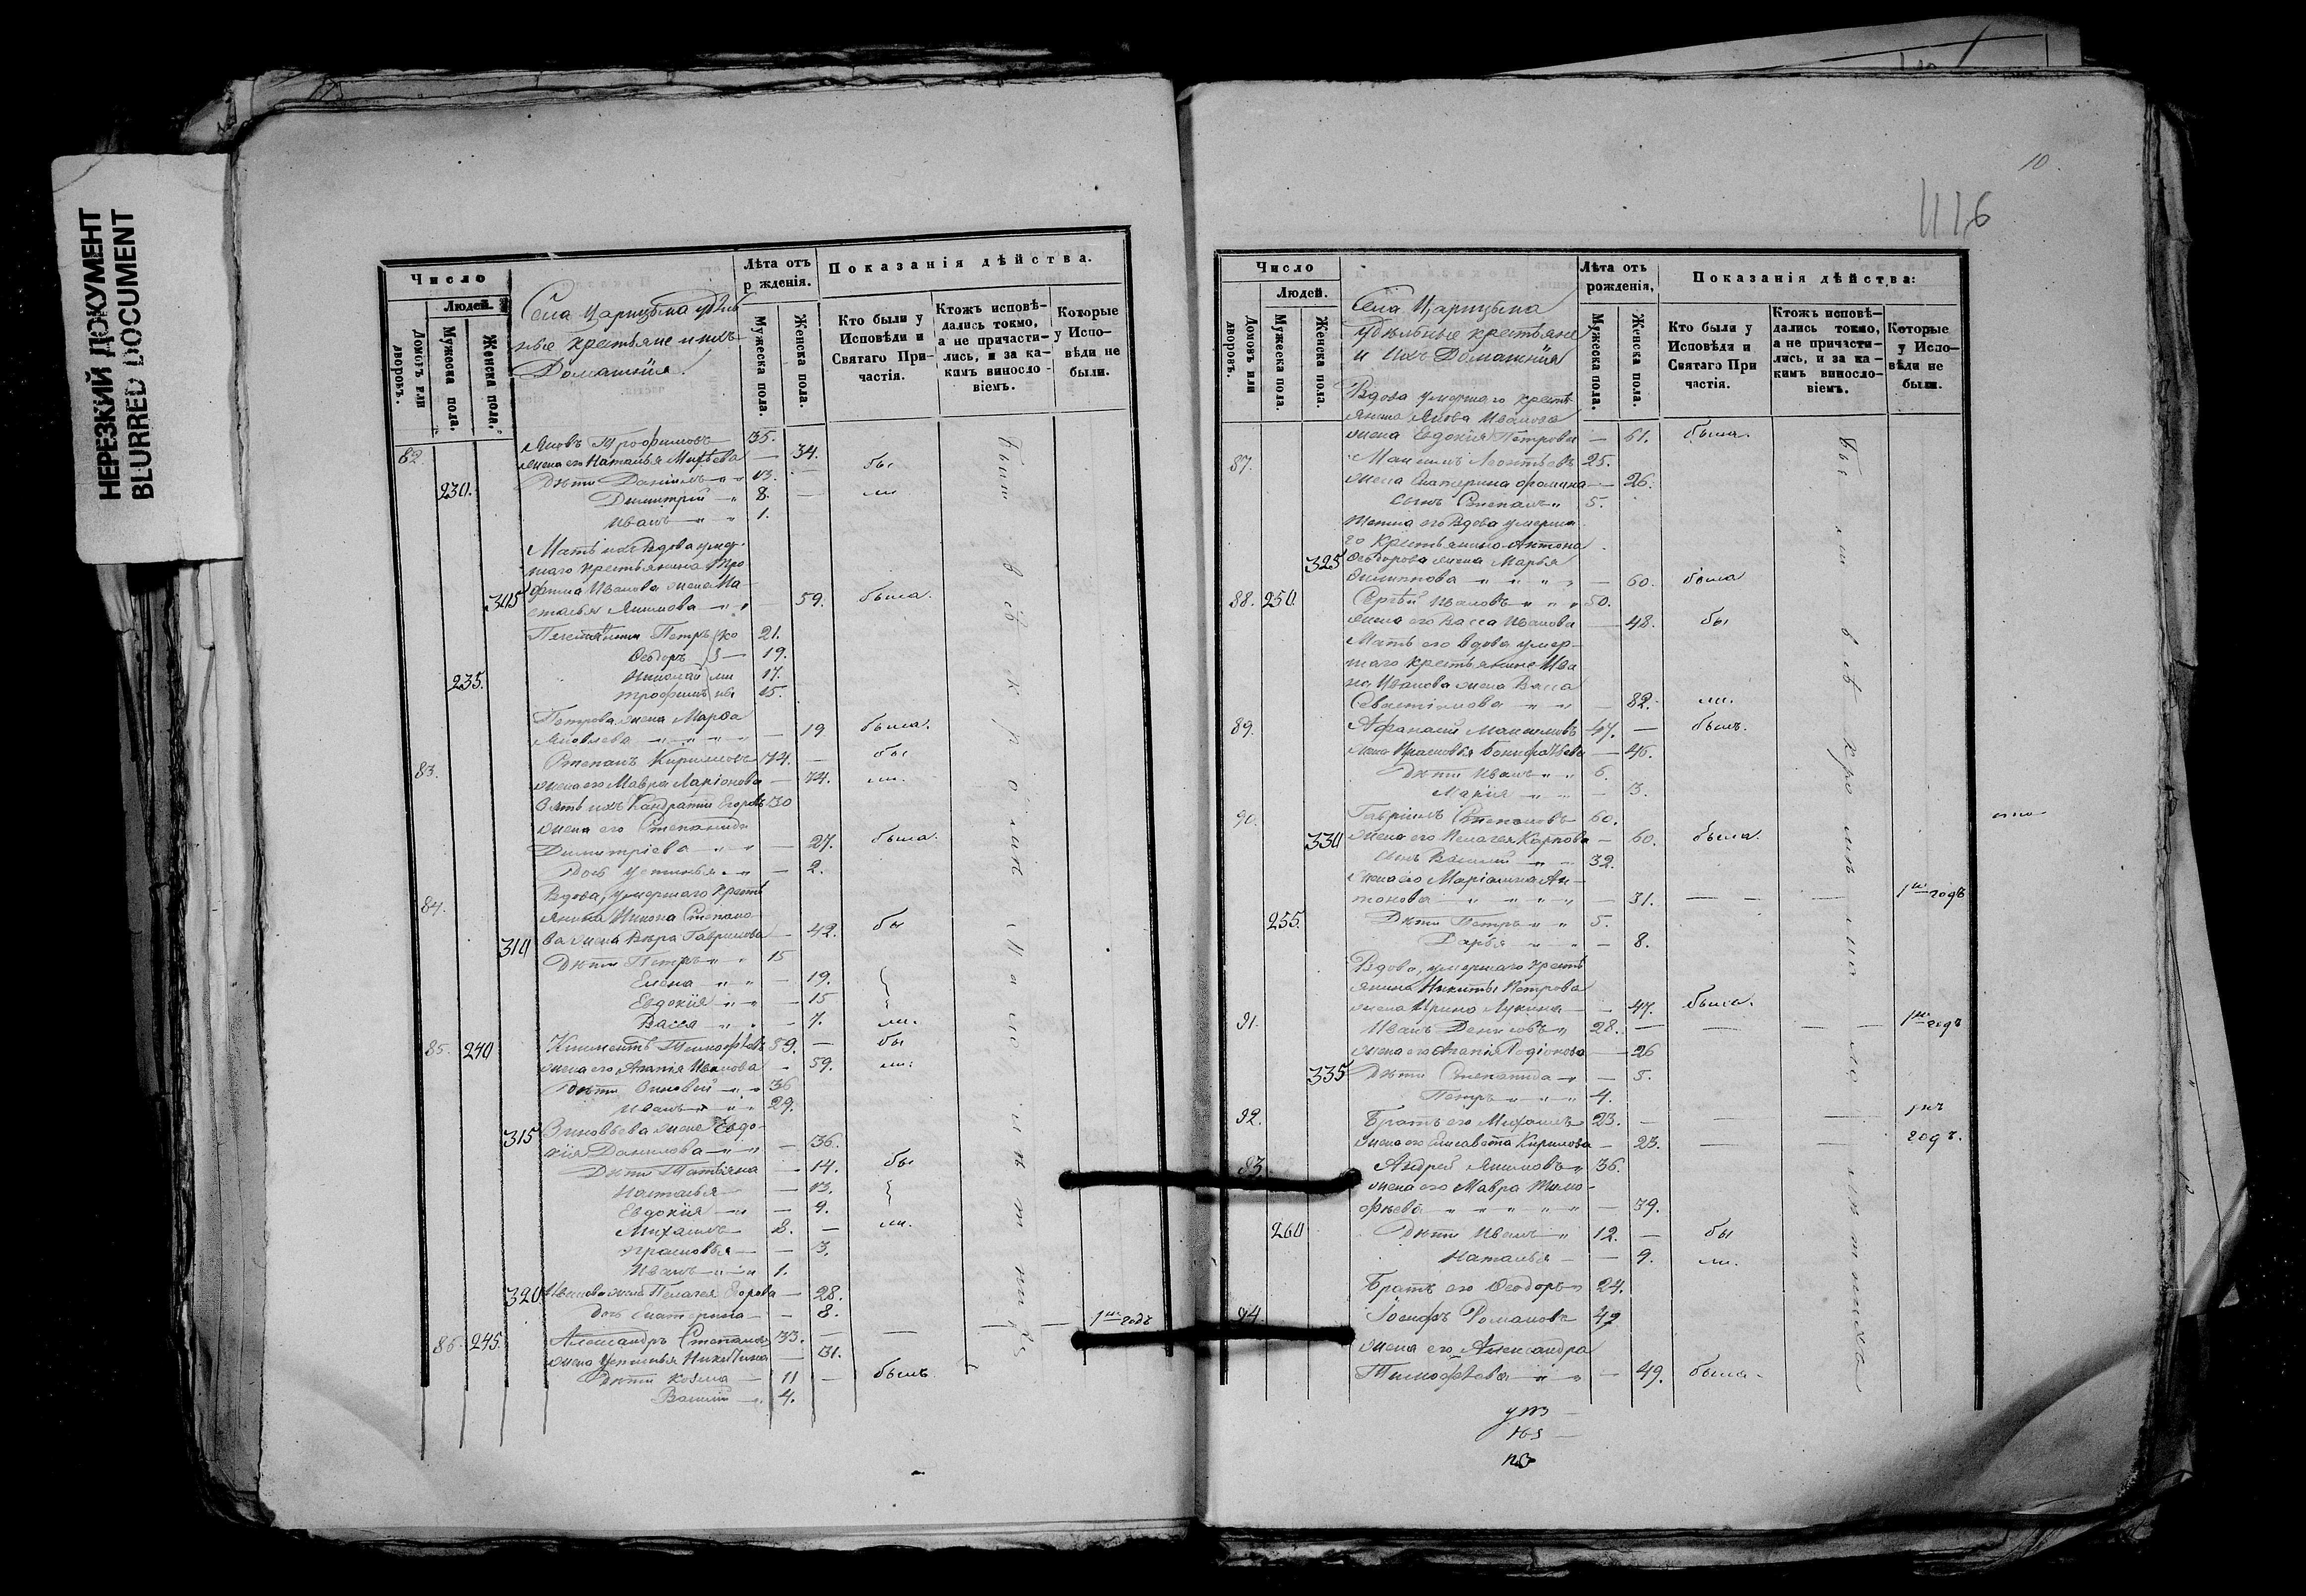 НЕРЕЗКИЙ ДОКУМЕНТ
BLURRED DOCUMENT
Число
Людей.
Домовъ или дворовъ.
Мужеска пола.
Женска пола.
Села Царицына удѣль
ные крестьяне и ихъ
Домашнія.
Лѣта отъ рожденія.
Мужеска пола.
Женска пола.
Показанія дѣйства.
Кто были у Исповѣди и Святаго Причастія.
Ктожъ исповѣдались токмо, а не причастились, и за какимъ винословіемъ.
Которые у Исповѣди не были.
82. Яковъ Трофимовъ 35.
жена его Наталья Михѣева — 34.
230. Дѣти Даніилъ 13. бы
Димитрій 8. — ли
Иванъ 1.
Мать ихъ Вдова умер-
шаго крестьянина Тро
фима Иванова жена На-
305 талья Якимова — 59. была.
Петръ 21.
Ѳеодоръ 19.
235. Николай 17.
Трофимъ 15.
Петрова жена Марѳа
Яковлева — 19 была.
83. Степанъ Кириловъ 74. — бы
жена его Мавра Ларіонова — 74. ли.
Зять ихъ Кандратій Егоровъ 30
жена его Степанида
Димитріева — 27. была.
Дочь Устинья — 2.
84. Вдова, умершаго кресть
янина Никона Степано
310 ва жена Вѣра Гаврилова — 42. бы
Дѣти Петръ 15
Елена — 19.
Евдокія — 15
Васса — 7. ли.
85. 240 Климентъ Тимофѣевъ 59. — бы
жена его Агапія Иванова — 59. ли.
Дѣти Зиновій 36
Иванъ 29.
315 Зиновьева жена Евдо-
кія Данилова — 36.
Дѣти Татьяна — 14. бы
Наталья — 13.
Евдокія — 9.
Михаилъ 8. — ли.
Прасковья — 3.
Иванъ 1.
320 Иванова жена Пелагея Егорова — 28.
дочь Екатерина — 8.
86. 245. Александръ Степановъ 33. — — — 1й годъ
жена Устинья Никитина — 31.
Дѣти Козма 11 — былъ
Василій 4.
10.
1116
Число
Людей.
Домовъ или дворовъ.
Мужеска пола.
Женска пола.
Села Царицына
удѣльные крестьяне
и ихъ Домашнія
Лѣта отъ рожденія,
Мужеска пола.
Женска пола.
Показанія дѣйства:
Кто были у Исповѣди и Святаго При частія.
Ктожъ исповѣдались токмо, а не причастились, и за какимъ винословіемъ.
Которые у Исповѣди не были.
Вдова умершаго кресть
янина Якова Иванова
жена Евдокія Петрова — 61. была.
87. Максимъ Леонтьевъ 25.
жена Екатерина — 26.
сынъ Степанъ 5.
Теща его Вдова умерша
го крестьянина Антона
325 Ѳеодорова жена Марья
Филиппова — 60. была
88. 250. Сергѣй Ивановъ 50.
жена его Васса Иванова — 48. бы
Мать его вдова умер-
шаго крестьянина Ива
на Иванова жена Васса
Севастіанова — 82. ли.
89. Афанасій Максимовъ 47. — былъ.
жена Прасковья Бонифатьева — 46.
Дѣти Иванъ 6.
Марія — 3.
90. Гавріилъ Степановъ 60.
330 жена его Пелагея Карпова — 60. была.
сынъ Василій 32.
жена его Маріамна Ан-
тонова — 31. — — — 1й годъ
255. Дѣти Петръ 5.
Дарья — 8.
Вдова, умершаго кресть
янина Никиты Петрова
жена Ирина Лукина — 47. была.
91. Иванъ Денисовъ 28. — — — — 1й годъ
жена его Агапія Родіонова — 26
335 Дѣти Степанида — 5.
Петръ 4.
92. Братъ его Михаилъ 23. — — —
жена его Елисавета Кирилова — 23. — — годъ.
93 Андрей Якимовъ 36.
жена его Мавра Тимо-
фѣева — 39.
260 Дѣти Иванъ 12. — бы
Наталья — 9. ли.
Братъ его Ѳеодоръ 24.
94. Іосифъ Романовъ 49
жена его Александра
Тимофѣева — 49. была.